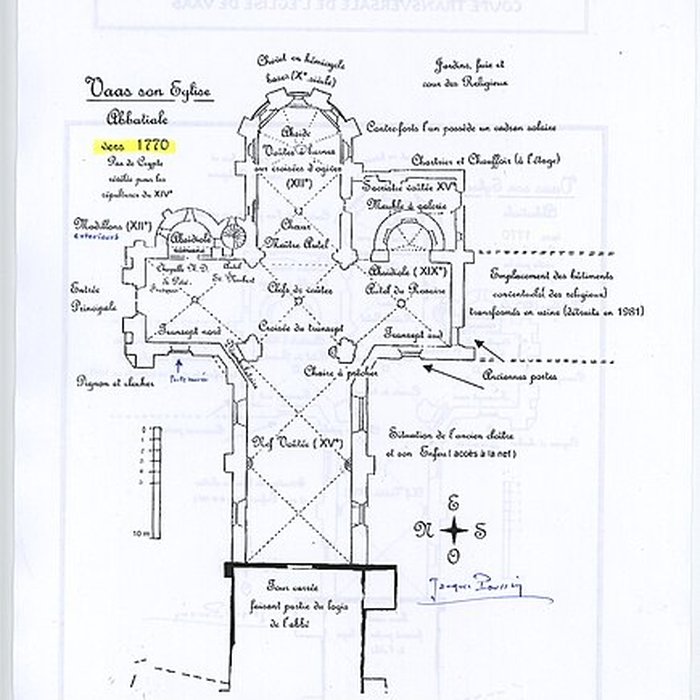 COUPE TRANSVERSALE DE L'EGLISE DE VAAS
Vaas son Eglise
Abbatiale
vers 1770
Pas de Crypte
révélée par les
républiver du XIV°
Chevet en hémicycle
bases (X° siècle)
Jardins, fuie et
cour des Religieux
Contreforts l'un possède un cadran solaire
Chartrier et Chauffoir (à l'étage)
Abside
Voûtes
sur croisées d'ogives
(XII°)
Sacristie voûtée XV°
Meuble à galerie
Chœur
Maître Autel
Modillons (XII°)
exterieurs
Absidiole
Chapelle N.D.
de Pitié
Autel
St Hubert
Absidiole (XIX°)
Autel du Rosaire
Entrée
Principale
Clefs de voûtes
Emplacement des bâtiments
conventuels (des religieux)
transformés en usine (détruits en 1981)
Transept nord
Croisée du transept
Transept sud
Pignon et clocher
Porte murée
Chaire à prêcher
Anciennes portes
Nef Voûtée (XV°)
Situation de l'ancien cloître
et son Enfeu (accès à la nef)
0
1
2
3
4
5
10 m
E
N
S
O
Tour carrée
faisant partie du logis
de l'abbé